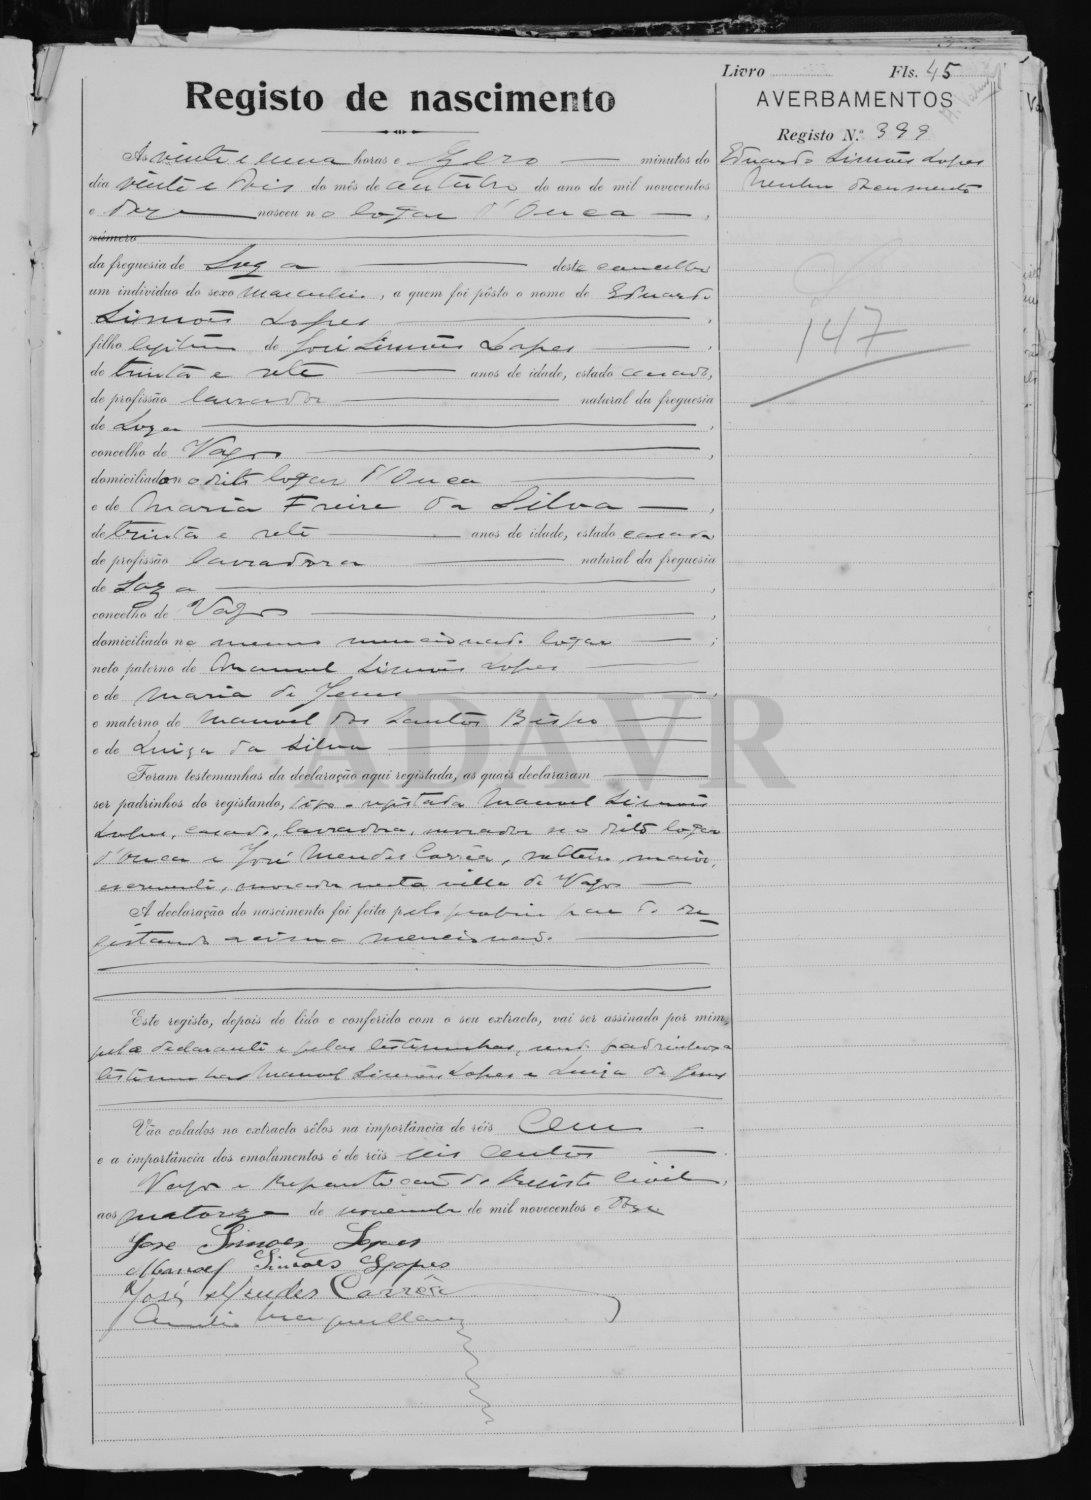 Livro Fls. 45
Registo de nascimento
AVERBAMENTOS
Registo N.º 399
Eduardo Simões Lopes
Nenhum documento
147
Ás vinte e uma horas e Zero minutos do
dia vinte e dois do mês de outubro do ano de mil novecentos
e doze nasceu no logar d'Ouca,
número
da freguesia de Soza deste concelho
um individuo do sexo masculino, a quem foi pôsto o nome de Eduardo
Simões Lopes,
filho legitimo de José Simões Lopes,
de trinta e sete anos de idade, estado casado,
de profissão lavrador natural da freguesia
de Soza,
concelho de Vagos,
domiciliado no dito logar d'Ouca
e de Maria Freire da Silva,
de trinta e sete anos de idade, estado casada
de profissão lavradora natural da freguesia
de Soza,
concelho de Vagos,
domiciliado no mesmo mencionado logar;
neto paterno de Manuel Simões Lopes
e de Maria de Jesus,
e materno de Manuel dos Santos Bispo
e de Luiza da Silva
Foram testemunhas da declaração aqui registada, as quais declararam
ser padrinhos do registando, Manuel Simões
Lopes, casado, lavrador, morador no dito logar
d'Ouca e José Mendes Corrêa, solteiro, maior,
morador nesta villa de Vagos
A declaração do nascimento foi feita pelo proprio pae do re-
gistando acima mencionado.
Este registo, depois de lido e conferido com o seu extracto, vai ser assinado por mim,
pelo declarante e pelas testemunhas, sendo padrinhos a
testemunha Manuel Simões Lopes e Luiza de Jesus
Vão colados no extracto sêlos na importância de réis Cem
e a importância dos emolumentos é de réis seis centos
Vagos e Repartição do Registo Civil,
aos quatorze de novembro de mil novecentos e doze
José Simões Lopes
Manoel Simões Lopes
José Mendes Corrêa
ADAVR